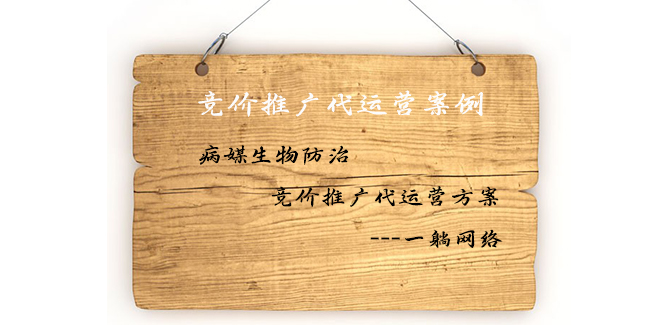 竞价推广代运营案例
病媒生物防治
竞价推广代运营方案
---一躺网络